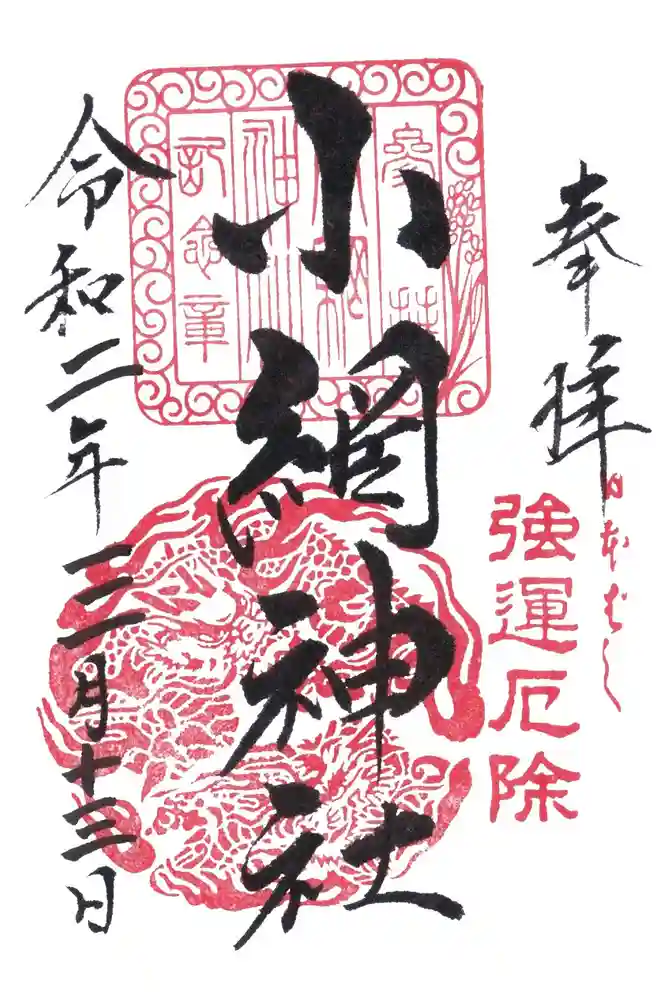 奉拝
日本ばし
強運厄除
小網神社
参拝
小網
神社
記念章
令和二年三月十三日